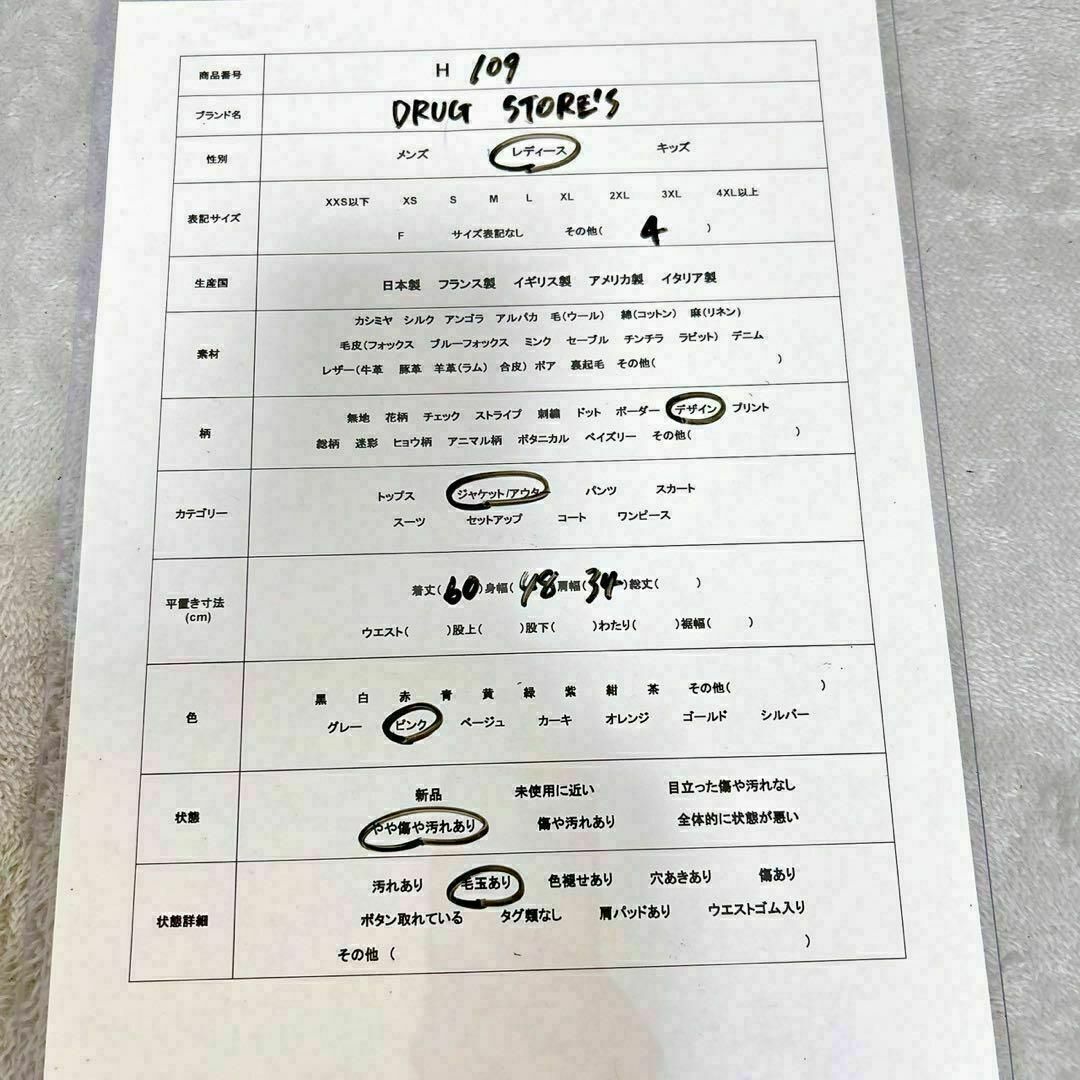 商品番号 H 109
ブランド名 DRUG STORE'S
性別 メンズ レディース キッズ
表記サイズ
XXS以下 XS S M L XL 2XL 3XL 4XL以上
F サイズ表記なし その他( 4 )
生産国 日本製 フランス製 イギリス製 アメリカ製 イタリア製
素材
カシミヤ シルク アンゴラ アルパカ 毛(ウール) 綿(コットン) 麻(リネン)
毛皮(フォックス ブルーフォックス ミンク セーブル チンチラ ラビット) デニム
レザー(牛革 豚革 羊革(ラム) 合皮) ボア 裏起毛 その他( )
柄
無地 花柄 チェック ストライプ 刺繍 ドット ボーダー デザイン プリント
総柄 迷彩 ヒョウ柄 アニマル柄 ボタニカル ペイズリー その他( )
カテゴリー
トップス ジャケット/アウタ パンツ スカート
スーツ セットアップ コート ワンピース
平置き寸法
(cm)
着丈( 60 )身幅( 48 肩幅( 34 )総丈( )
ウエスト( )股上( )股下( )わたり( )裾幅( )
色
黒 白 赤 青 黄 緑 紫 紺 茶 その他( )
グレー ピンク ベージュ カーキ オレンジ ゴールド シルバー
状態
新品 未使用に近い 目立った傷や汚れなし
やや傷や汚れあり 傷や汚れあり 全体的に状態が悪い
状態詳細
汚れあり 毛玉あり 色褪せあり 穴あきあり 傷あり
ボタン取れている タグ類なし 肩パッドあり ウエストゴム入り
その他 ( )